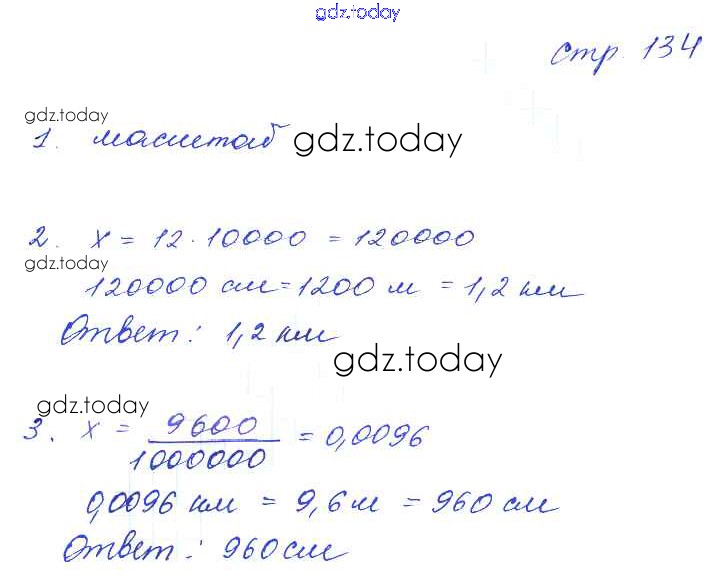 gdz.today
стр. 134
gdz.today
1. масштаб gdz.today
2. x = 12 · 10000 = 120000
gdz.today
120000 см = 1200 м = 1,2 км
Ответ: 1,2 км
gdz.today
gdz.today
3. x = 9600 / 1000000 = 0,0096
0,0096 км = 9,6 м = 960 см
Ответ: 960 см